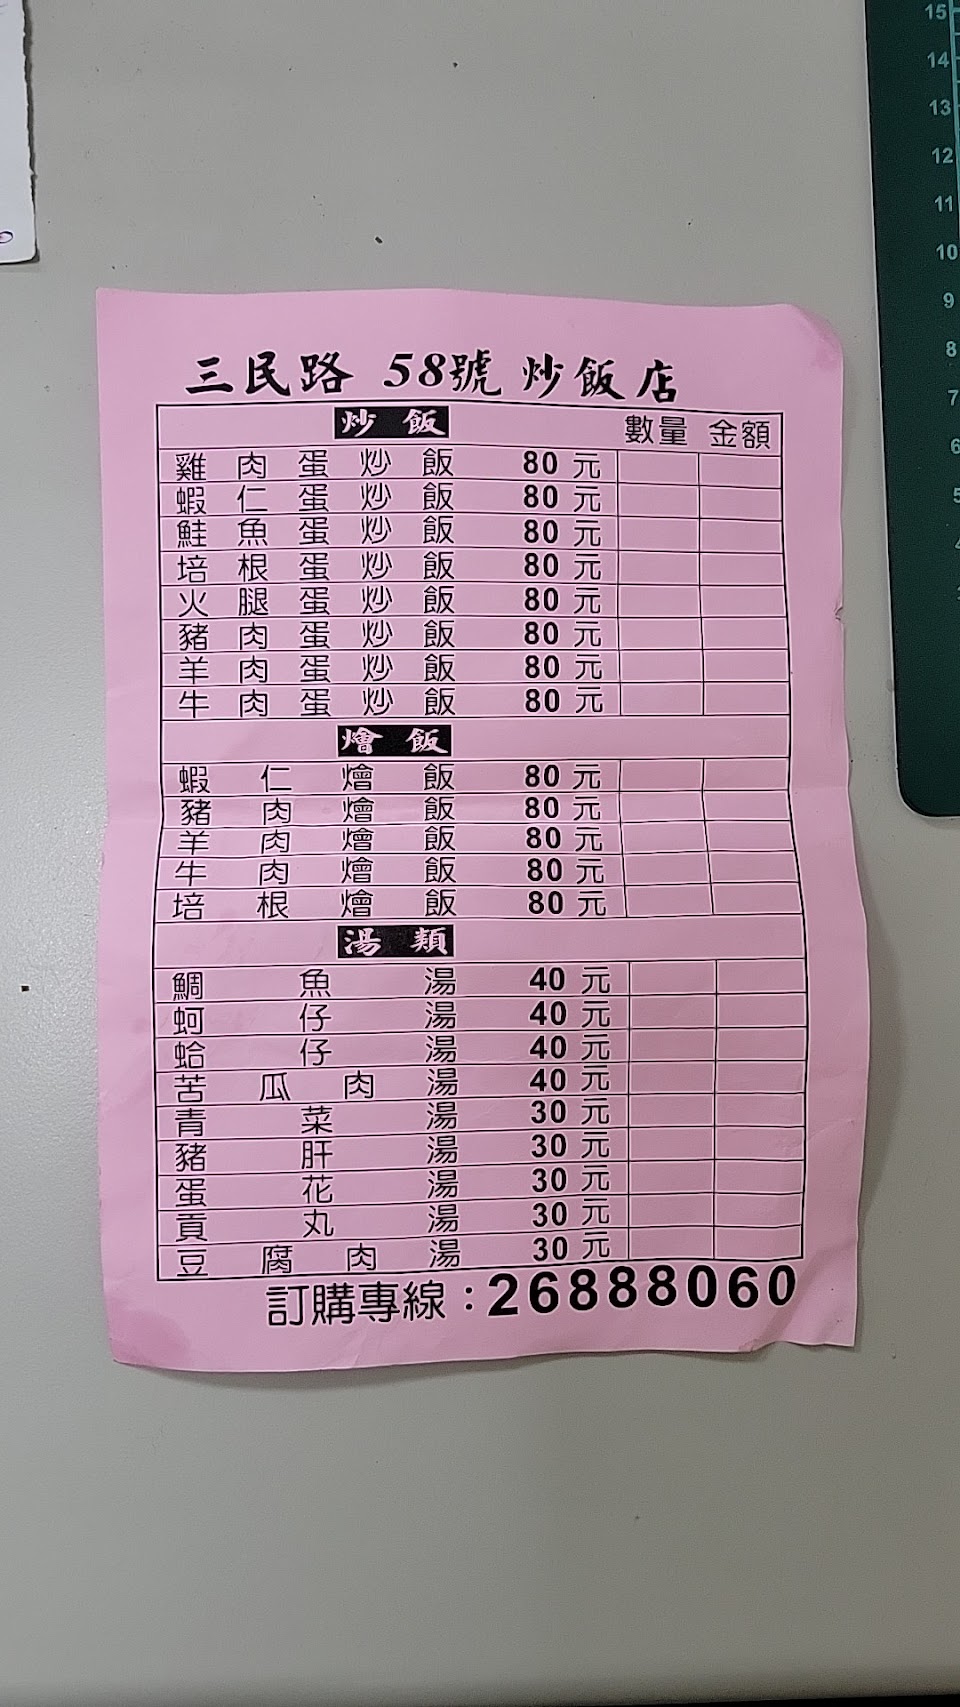 三民路 58號 炒飯店
炒飯 數量 金額
雞肉蛋炒飯 80元
蝦仁蛋炒飯 80元
鮭魚蛋炒飯 80元
培根蛋炒飯 80元
火腿蛋炒飯 80元
豬肉蛋炒飯 80元
羊肉蛋炒飯 80元
牛肉蛋炒飯 80元
燴飯
蝦仁燴飯 80元
豬肉燴飯 80元
羊肉燴飯 80元
牛肉燴飯 80元
培根燴飯 80元
湯類
鯛魚湯 40元
蚵仔湯 40元
蛤仔湯 40元
苦瓜肉湯 40元
青菜湯 30元
豬肝湯 30元
蛋花湯 30元
貢丸湯 30元
豆腐肉湯 30元
訂購專線：26888060
15
14
13
12
11
10
9
8
7
6
5